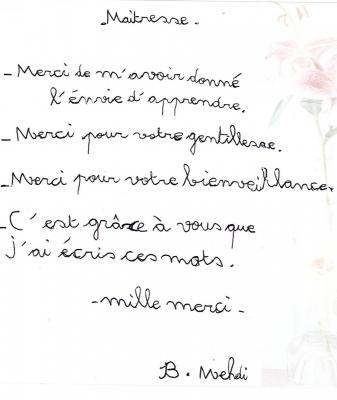 Maitresse -
- Merci de m'avoir donné
l'énvie d'apprendre.
- Merci pour votre gentillesse.
- Merci pour votre bienveillance.
- C'est grâce à vous que
j'ai écris ces mots.
- mille merci -
B. Mehdi